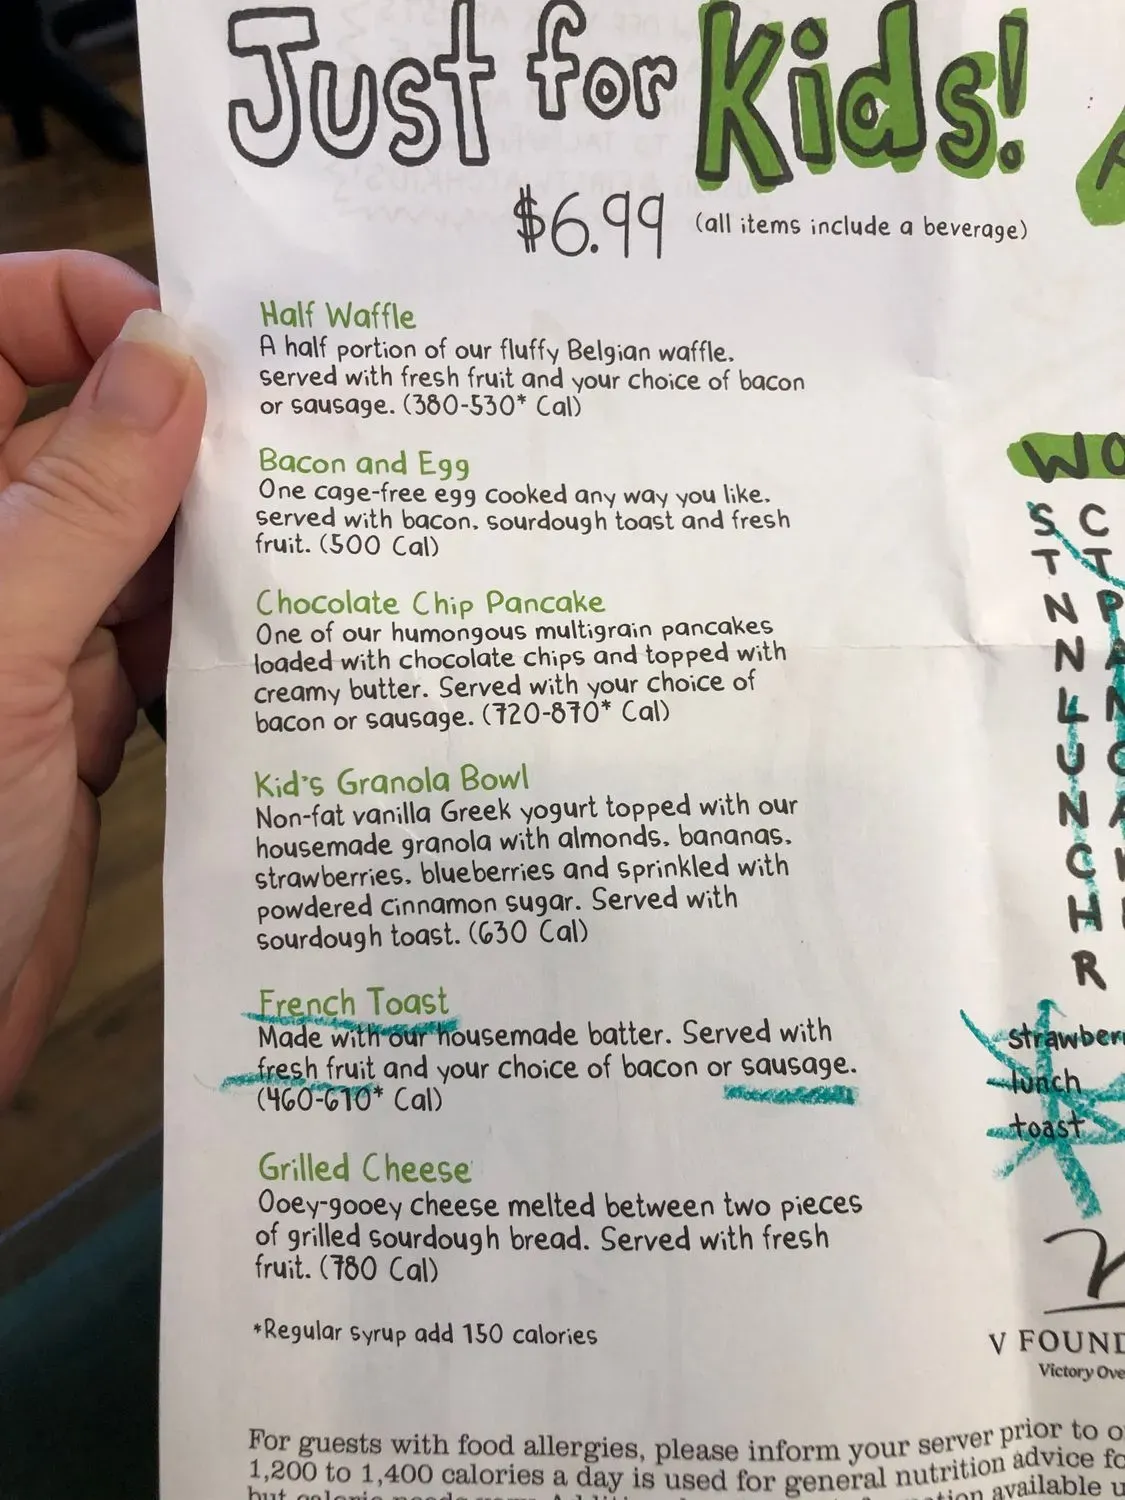 Just for Kids!
$6.99 (all items include a beverage)
Half Waffle
A half portion of our fluffy Belgian waffle,
served with fresh fruit and your choice of bacon
or sausage. (380-530* Cal)
Bacon and Egg
One cage-free egg cooked any way you like,
served with bacon, sourdough toast and fresh
fruit. (500 Cal)
Chocolate Chip Pancake
One of our humongous multigrain pancakes
loaded with chocolate chips and topped with
creamy butter. Served with your choice of
bacon or sausage. (720-870* Cal)
Kid's Granola Bowl
Non-fat vanilla Greek yogurt topped with our
housemade granola with almonds, bananas,
strawberries, blueberries and sprinkled with
powdered cinnamon sugar. Served with
sourdough toast. (630 Cal)
French Toast
Made with our housemade batter. Served with
fresh fruit and your choice of bacon or sausage.
(460-610* Cal)
Grilled Cheese
Ooey-gooey cheese melted between two pieces
of grilled sourdough bread. Served with fresh
fruit. (780 Cal)
*Regular syrup add 150 calories
S C
T T
N P
N A
L N
U C
N A
C
H
R
lunch
toast
V
Victory
For guests with food allergies, please inform your server prior to
1,200 to 1,400 calories a day is used for general nutrition advice
available